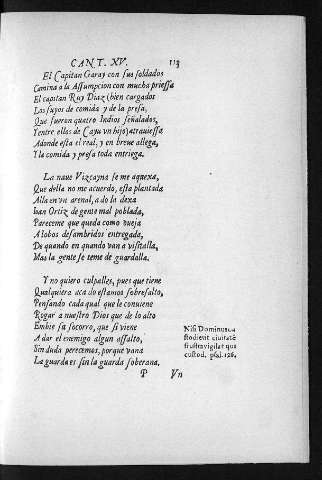 CANT. XV. 113
El Capitan Garay con sus soldados
Camina a la Assumpcion con mucha priessa
El capitan Ruy Diaz (bien cargados
Los suyos de comida y de la presa,
Que fueron quatro Indios señalados,
Y entre ellos de Cayu vn hijo) atrauiessa
Adonde esta el real, y en breue allega,
Y la comida y presa toda entriega.
La naue Vizcayna se me aquexa,
Que della no me acuerdo, esta plantada
Alla en vn arenal, a do la dexa
Iuan Ortiz de gente mal poblada,
Pareceme que queda como oueja
A lobos desambridos entregada,
De quando en quando van a visitalla,
Mas la gente se teme de guardalla.
Y no quiero culpalles, pues que tiene
Qualquiera aca do estamos sobresalto,
Pensando cada qual que le conuiene
Rogar a nuestro Dios que de lo alto
Embie su socorro, que si viene
A dar el enemigo algun assalto,
Sin duda perecemos, porque vana
La guarda es sin la guarda soberana.
Nisi Dominus cu
stodierit ciuitatē
frustra vigilat qui
custod. psal. 126.
P Vn